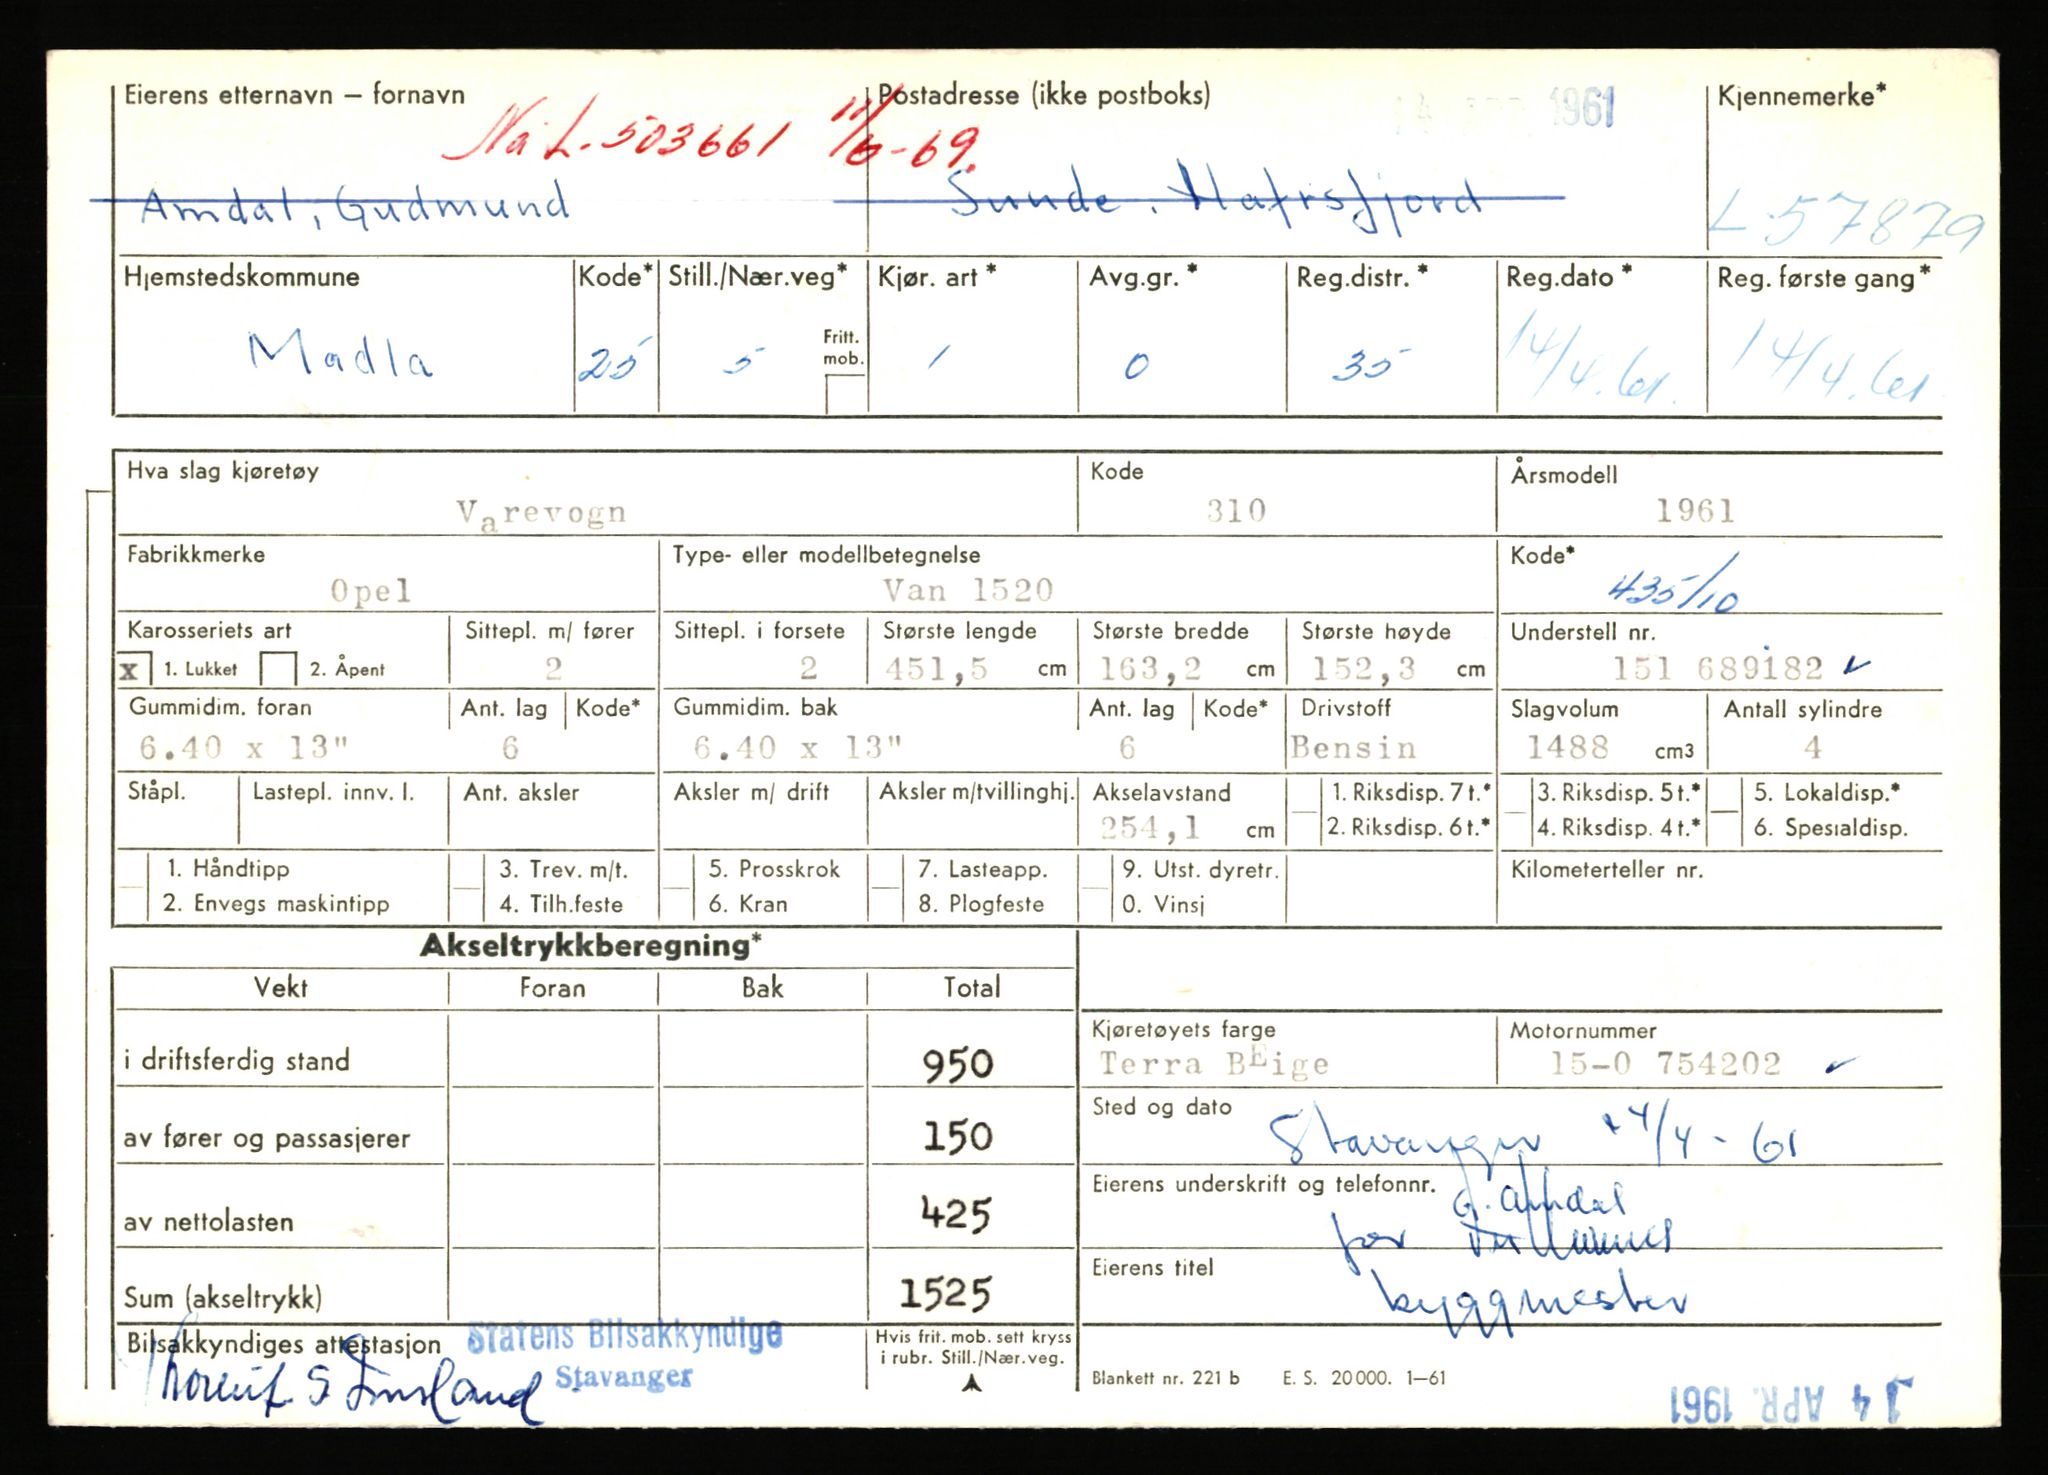 Eierens etternavn – fornavn Postadresse (ikke postboks) Kjennemerke*
14 APR. 1961
Nå L-503661 11/6-69.
Amdal, Gudmund Sunde, Hafrsfjord L-57879
Hjemstedskommune Kode* Still./Nær.veg* Kjør. art* Avg.gr.* Reg.distr.* Reg.dato* Reg. første gang*
Fritt. mob.
Madla 25 5 1 0 35 14/4.61. 14/4.61
Hva slag kjøretøy Kode Årsmodell
Varevogn 310 1961
Fabrikkmerke Type- eller modellbetegnelse Kode*
Opel Van 1520 435/10
Karosseriets art Sittepl. m/ fører Sittepl. i forsete Største lengde Største bredde Største høyde Understell nr.
x 1. Lukket 2. Åpent 2 2 451,5 cm 163,2 cm 152,3 cm 151 689182
Gummidim. foran Ant. lag Kode* Gummidim. bak Ant. lag Kode* Drivstoff Slagvolum Antall sylindre
6.40 x 13" 6 6.40 x 13" 6 Bensin 1488 cm3 4
Ståpl. Lastepl. innv. l. Ant. aksler Aksler m/ drift Aksler m/tvillinghj. Akselavstand 1. Riksdisp. 7 t.* 3. Riksdisp. 5 t.* 5. Lokaldisp.*
254,1 cm 2. Riksdisp. 6 t.* 4. Riksdisp. 4 t.* 6. Spesialdisp.
1. Håndtipp 3. Trev. m/t. 5. Prosskrok 7. Lasteapp. 9. Utst. dyretr. Kilometerteller nr.
2. Envegs maskintipp 4. Tilh.feste 6. Kran 8. Plogfeste 0. Vinsj
Akseltrykkberegning*
Vekt Foran Bak Total
Kjøretøyets farge Motornummer
i driftsferdig stand 950 Terra BEige 15-0 754202
Sted og dato
av fører og passasjerer 150 Stavanger 14/4 - 61
Eierens underskrift og telefonnr.
G. Amdal
av nettolasten 425 for
Eierens titel
Sum (akseltrykk) 1525 byggmester
Bilsakkyndiges attestasjon Statens Bilsakkyndige Hvis frit. mob. sett kryss
Stavanger i rubr. Still./Nær.veg.
Blankett nr. 221 b E. S. 20 000. 1–61
14 APR. 1961